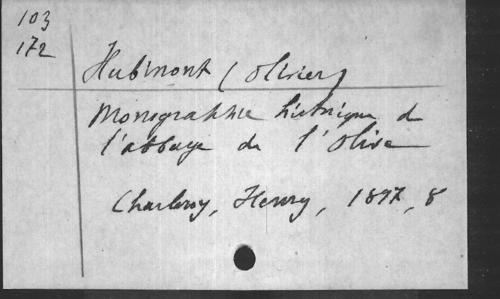 103
172
Hubinont (Olivier)
Monographie historique de
l'abbaye de l'Olive
Charleroy, Henry, 1897, 8